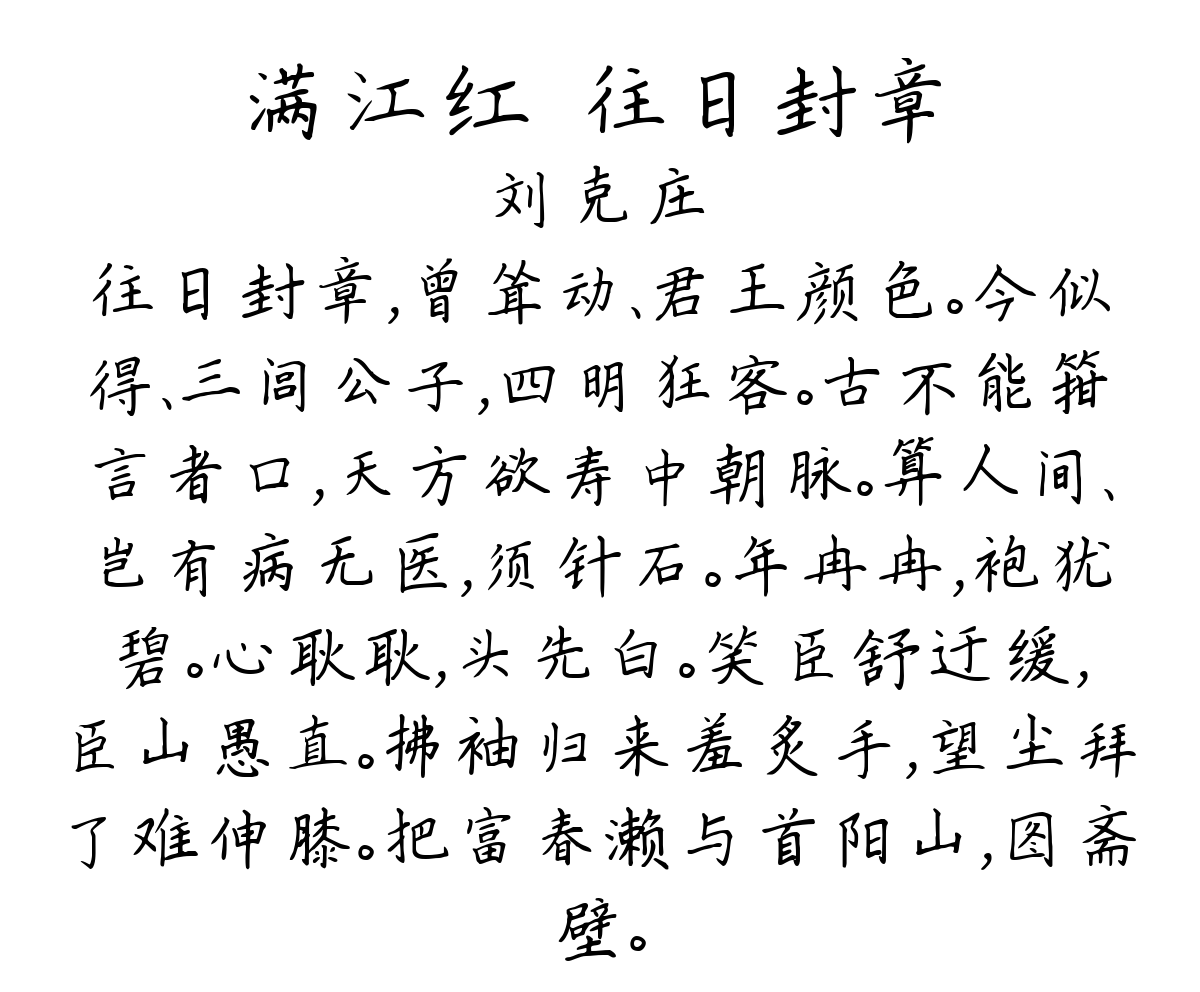 满江红 往日封章
刘克庄
往日封章,曾耸动、君王颜色。今似
得、三闾公子,四明狂客。古不能箝
言者口,天方欲寿中朝脉。算人间、
岂有病无医,须针石。年冉冉,袍犹
碧。心耿耿,头先白。笑臣舒迂缓,
臣山愚直。拂袖归来羞炙手,望尘拜
了难伸膝。把富春濑与首阳山,图斋
壁。